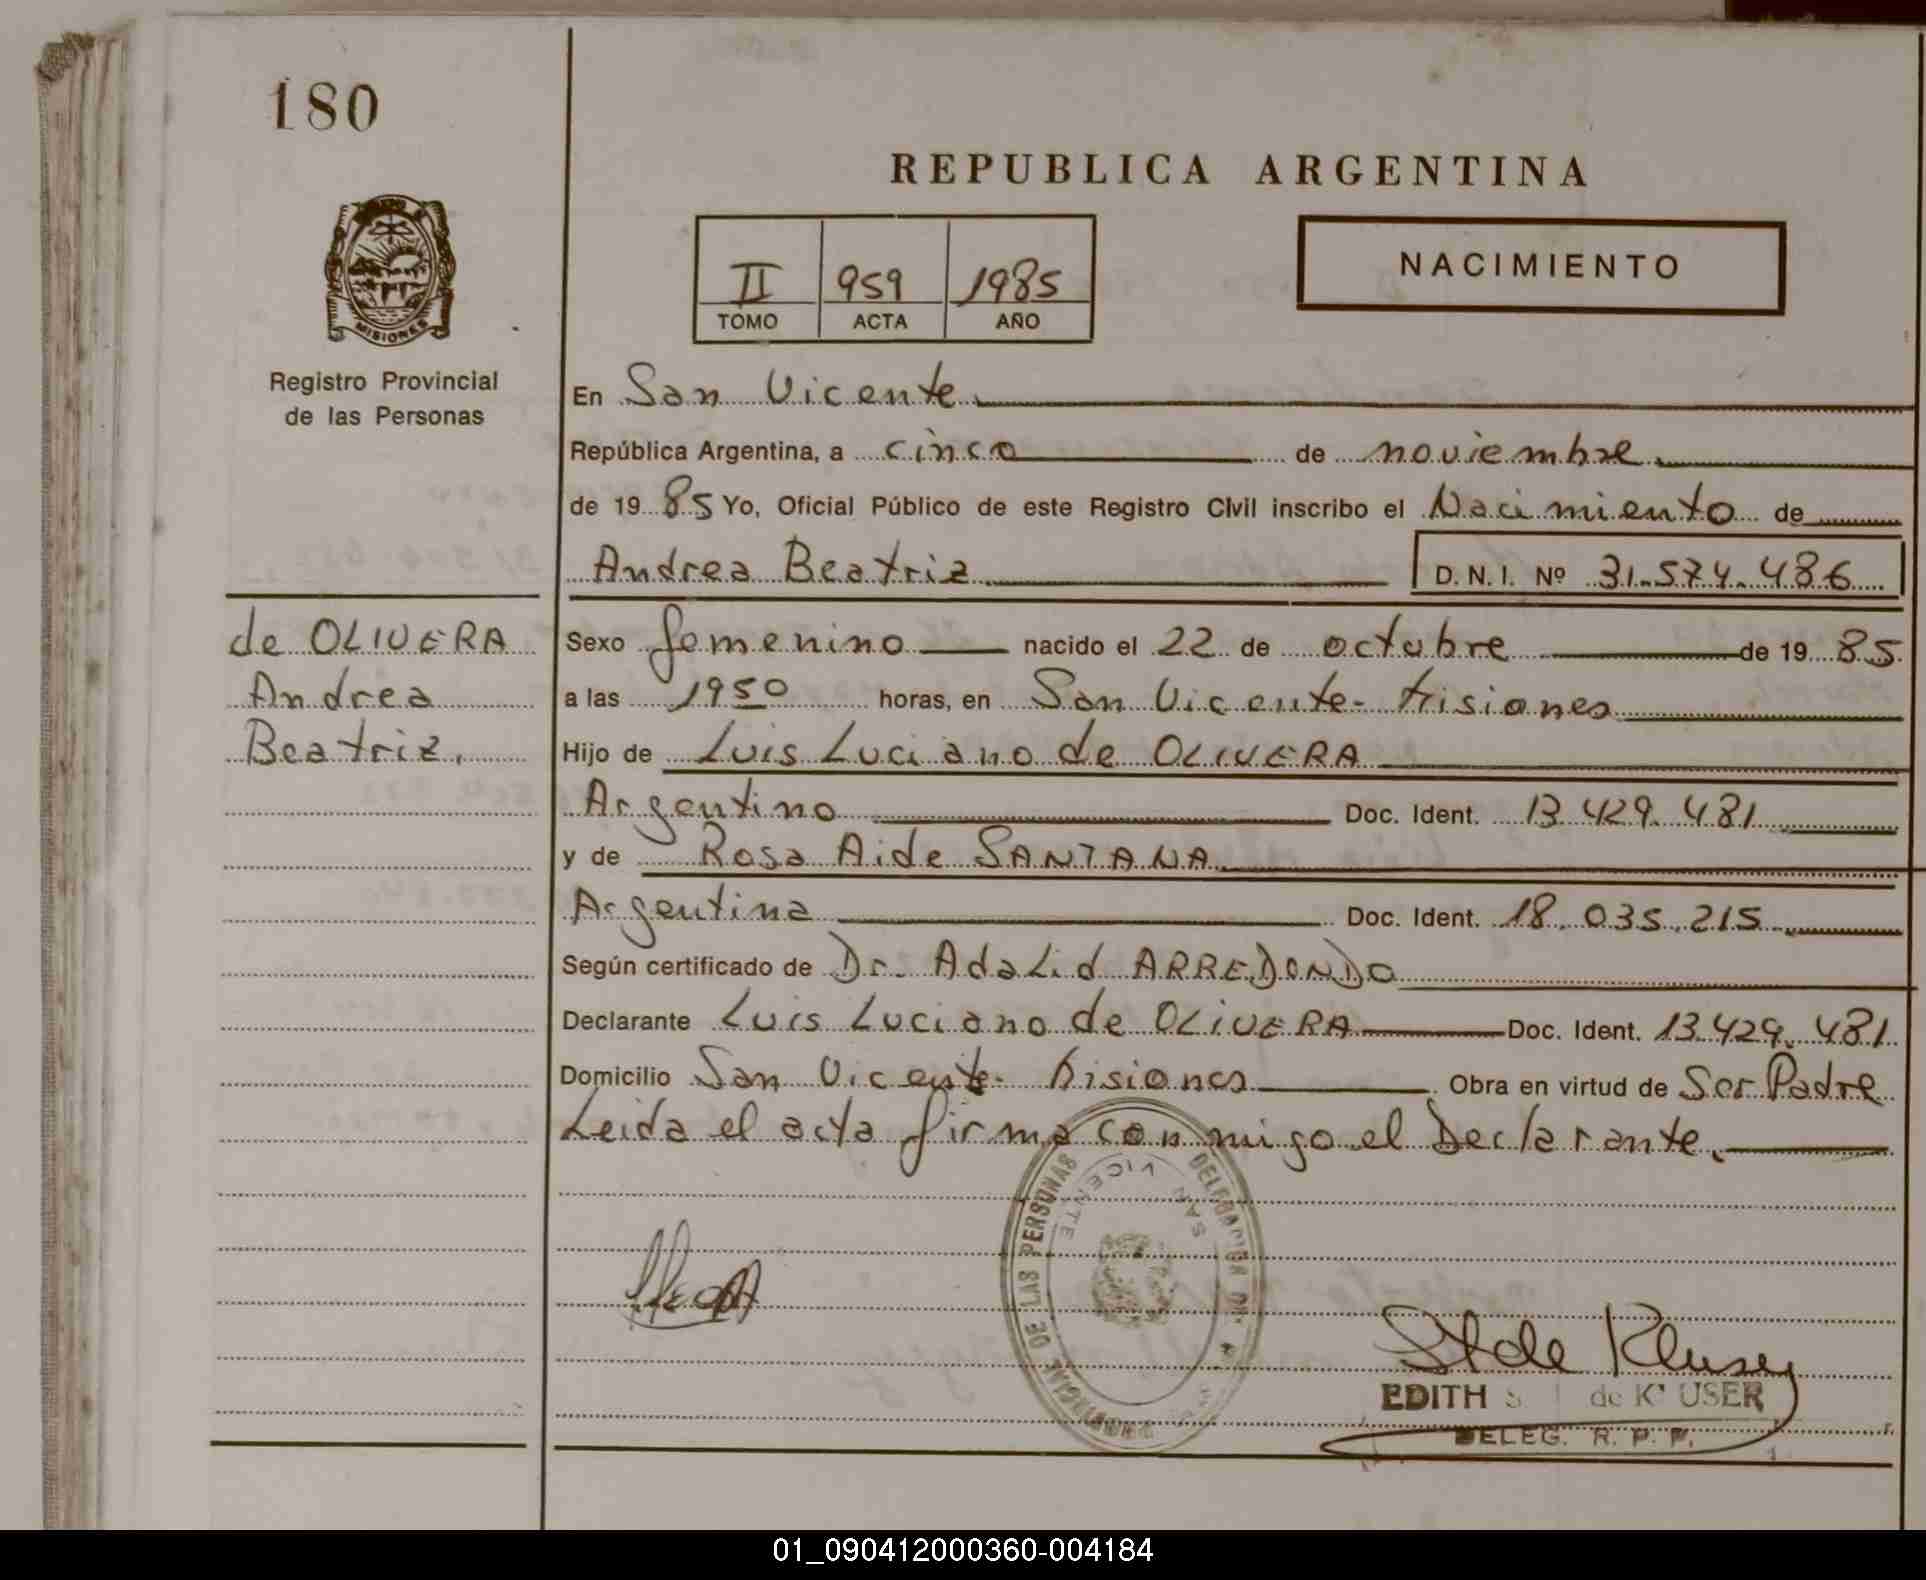 180
REPUBLICA ARGENTINA
MISIONES
Registro Provincial
de las Personas
II 959 1985
TOMO ACTA AÑO
NACIMIENTO
En San Vicente
República Argentina, a cinco de noviembre
de 1985 Yo, Oficial Público de este Registro Civil inscribo el Nacimiento de
Andrea Beatriz D.N.I. Nº 31.574.486
de OLIVERA
Andrea
Beatriz.
Sexo femenino nacido el 22 de octubre de 1985
a las 1950 horas, en San Vicente - Misiones
Hijo de Luis Luciano de OLIVERA
Argentino Doc. Ident. 13.429.481
y de Rosa Aide SANTANA
Argentina Doc. Ident. 18.035.215
Según certificado de Dr. Adalid ARREDONDO
Declarante Luis Luciano de OLIVERA Doc. Ident. 13.429.481
Domicilio San Vicente - Misiones Obra en virtud de Ser Padre
Leida el acta firma con migo el Declarante.
DELEGACION
SAN VICENTE
DE LAS PERSONAS
EDITH de K USER
DELEG. R. P. P.
01_090412000360-004184